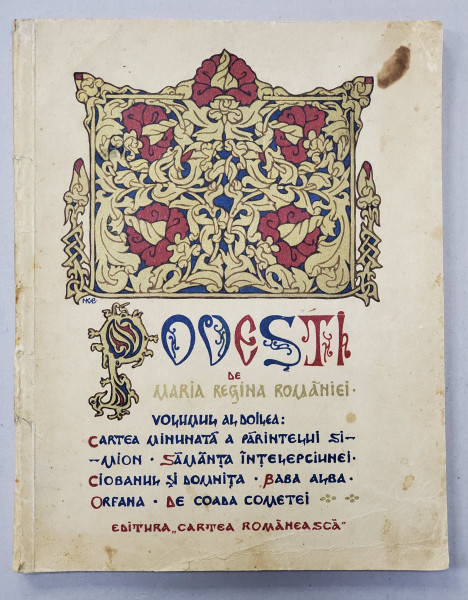 POVEȘTI
DE
MARIA REGINA ROMÂNIEI·
VOLUMUL AL DOILEA:
CARTEA MINUNATĂ A PĂRINTELUI SI-
-MION · SĂMÂNȚA ÎNȚELEPCIUNEI·
CIOBANUL ȘI DOMNIȚA · BABA ALBA·
ORFANA · DE COADA COMETEI
EDITURA „CARTEA ROMÂNEASCĂ"